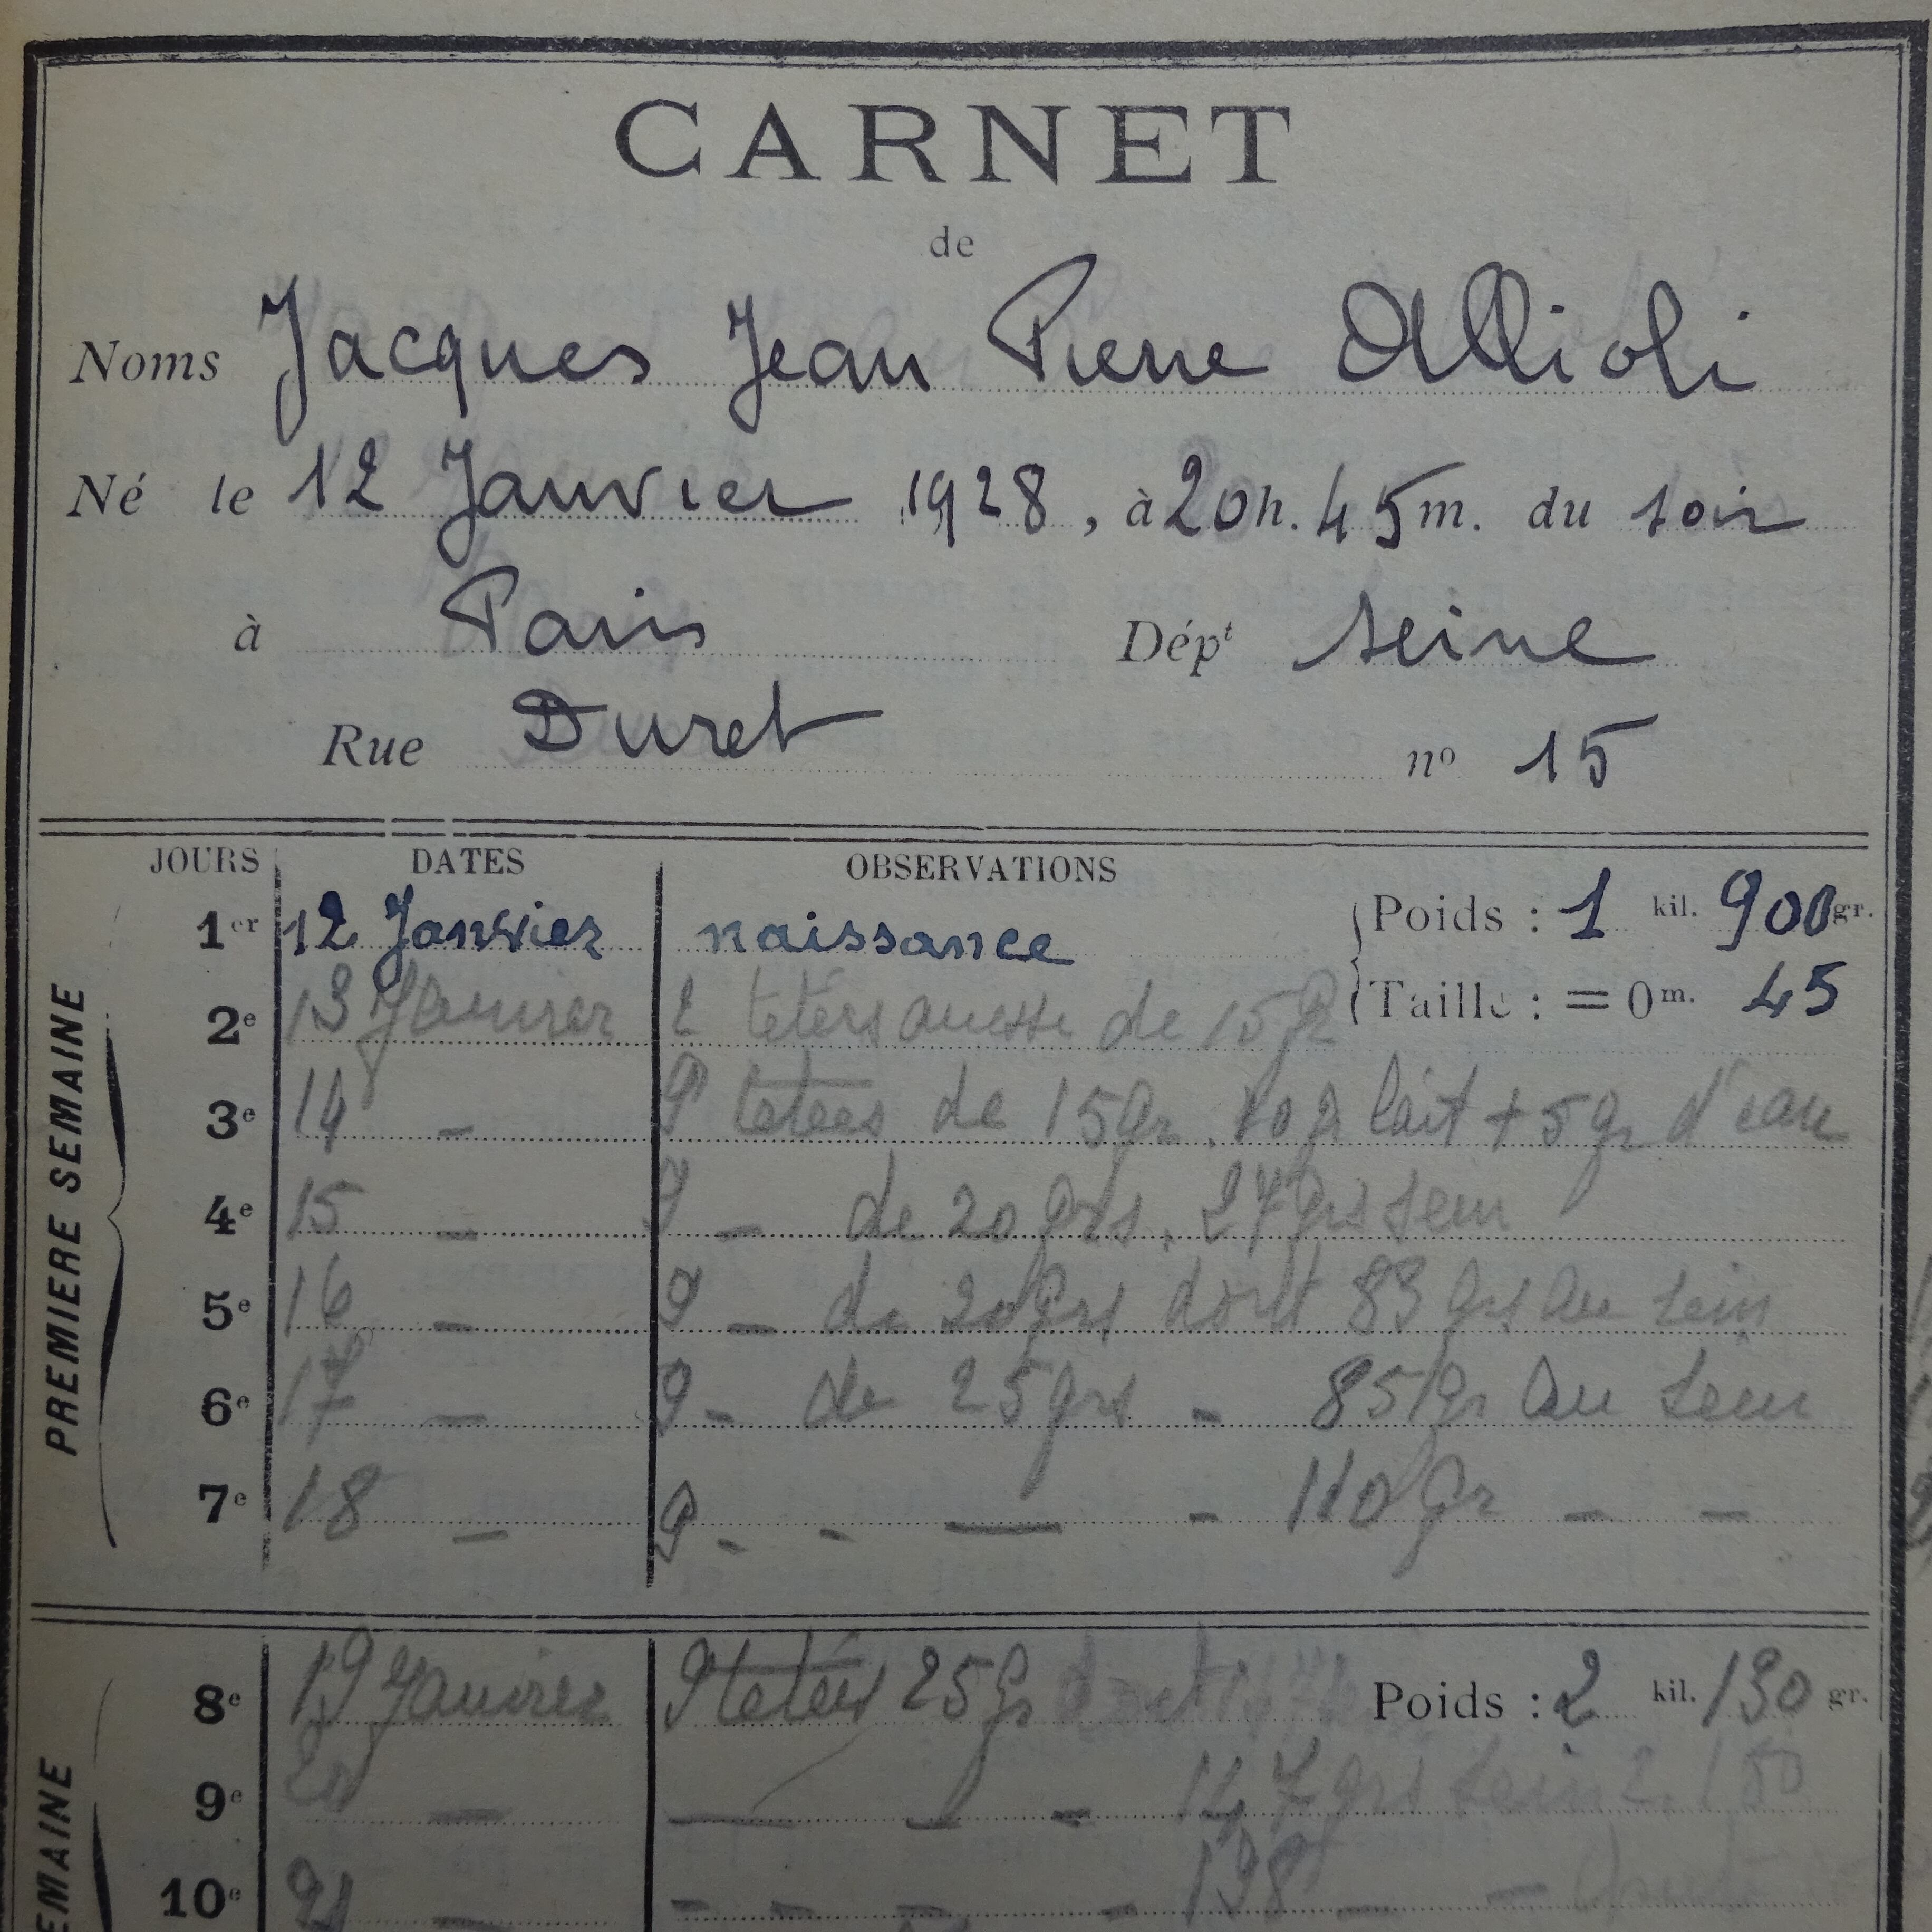 CARNET
de
Noms Jacques Jean Pierre Allioli
Né le 12 Janvier 1928, à 20 h. 45 m. du soir
à Paris Dépt Seine
Rue Duret no 15
JOURS DATES OBSERVATIONS
PREMIERE SEMAINE
1er 12 Janvier naissance Poids : 1 kil. 900 gr.
Taille : = 0m. 45
2e 13 Janvier de 15 gr
3e 14 - 9 tetées de 15 gr. 10 gr lait + 5 gr d'eau
4e 15 - 9 - de 20 grs. 27 grs sein
5e 16 - 9 - de 20 grs dont 83 grs au sein
6e 17 - 9 - de 25 grs - 85 gr au sein
7e 18 - 9 - - — - 110 gr - -
8e 19 Janvier 9 tetées 25 gr Poids : 2 kil. 130 gr.
EMAINE
9e 20 - — - - 147 grs sein 2.150
10e 21 - - - - - 198 - -